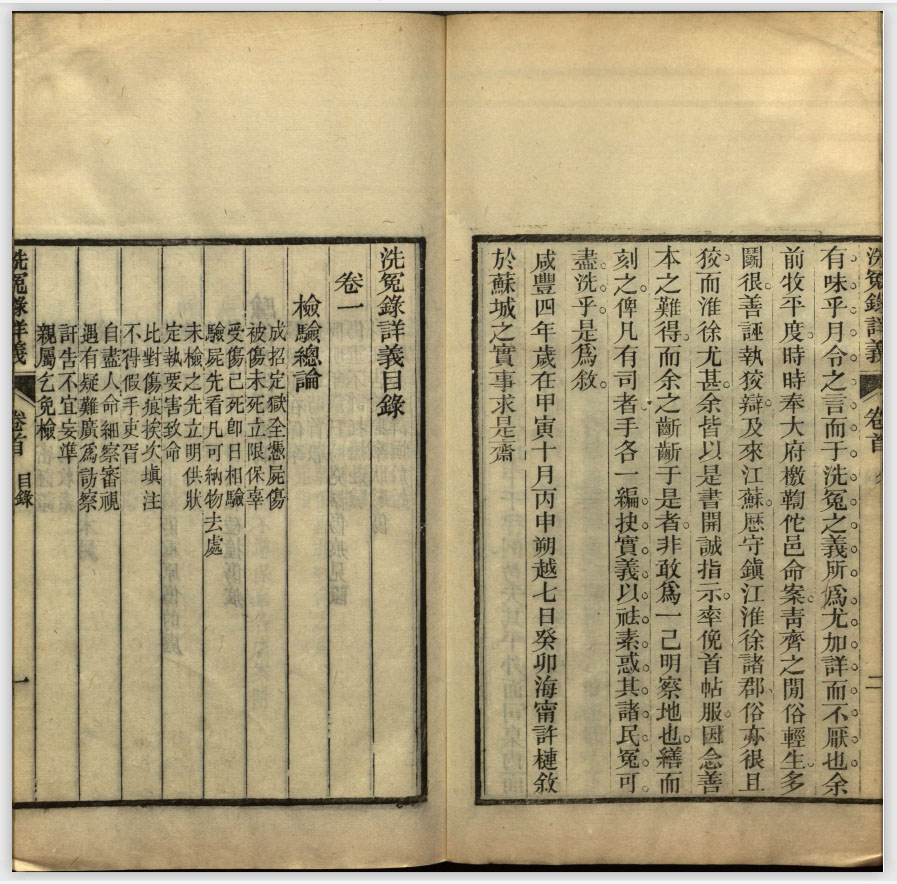 洗冤錄詳義 卷首 二
有味乎月令之言而于洗冤之義所為尤加詳而不厭也余
前牧平度時時奉大府檄鞫佗邑命案靑齊之閒俗輕生多
鬬很善誣執狡辯及來江蘇歷守鎭江淮徐諸郡俗亦很且
狡而淮徐尤甚余皆以是書開誠指示率俛首帖服因念善
本之難得而余之齗齗于是者非敢爲一己明察地也繕而
刻之俾凡有司者手各一編抉實義以祛素惑其諸民冤可
盡洗乎是爲敘
咸豐四年歲在甲寅十月丙申朔越七日癸卯海甯許槤敘
於蘇城之實事求是齋
洗冤錄詳義目錄
卷一
檢驗總論
成招定獄全憑屍傷
被傷未死立限保辜
受傷已死卽日相驗
驗屍先看凡可納物去處
未檢之先立明供狀
定執要害致命
比對傷痕挨次塡注
不得假手吏胥
自盡人命細察審視
遇有疑難廣爲訪察
訐告不宜妄準
親屬乞免檢
洗冤錄詳義 卷首 目錄 一